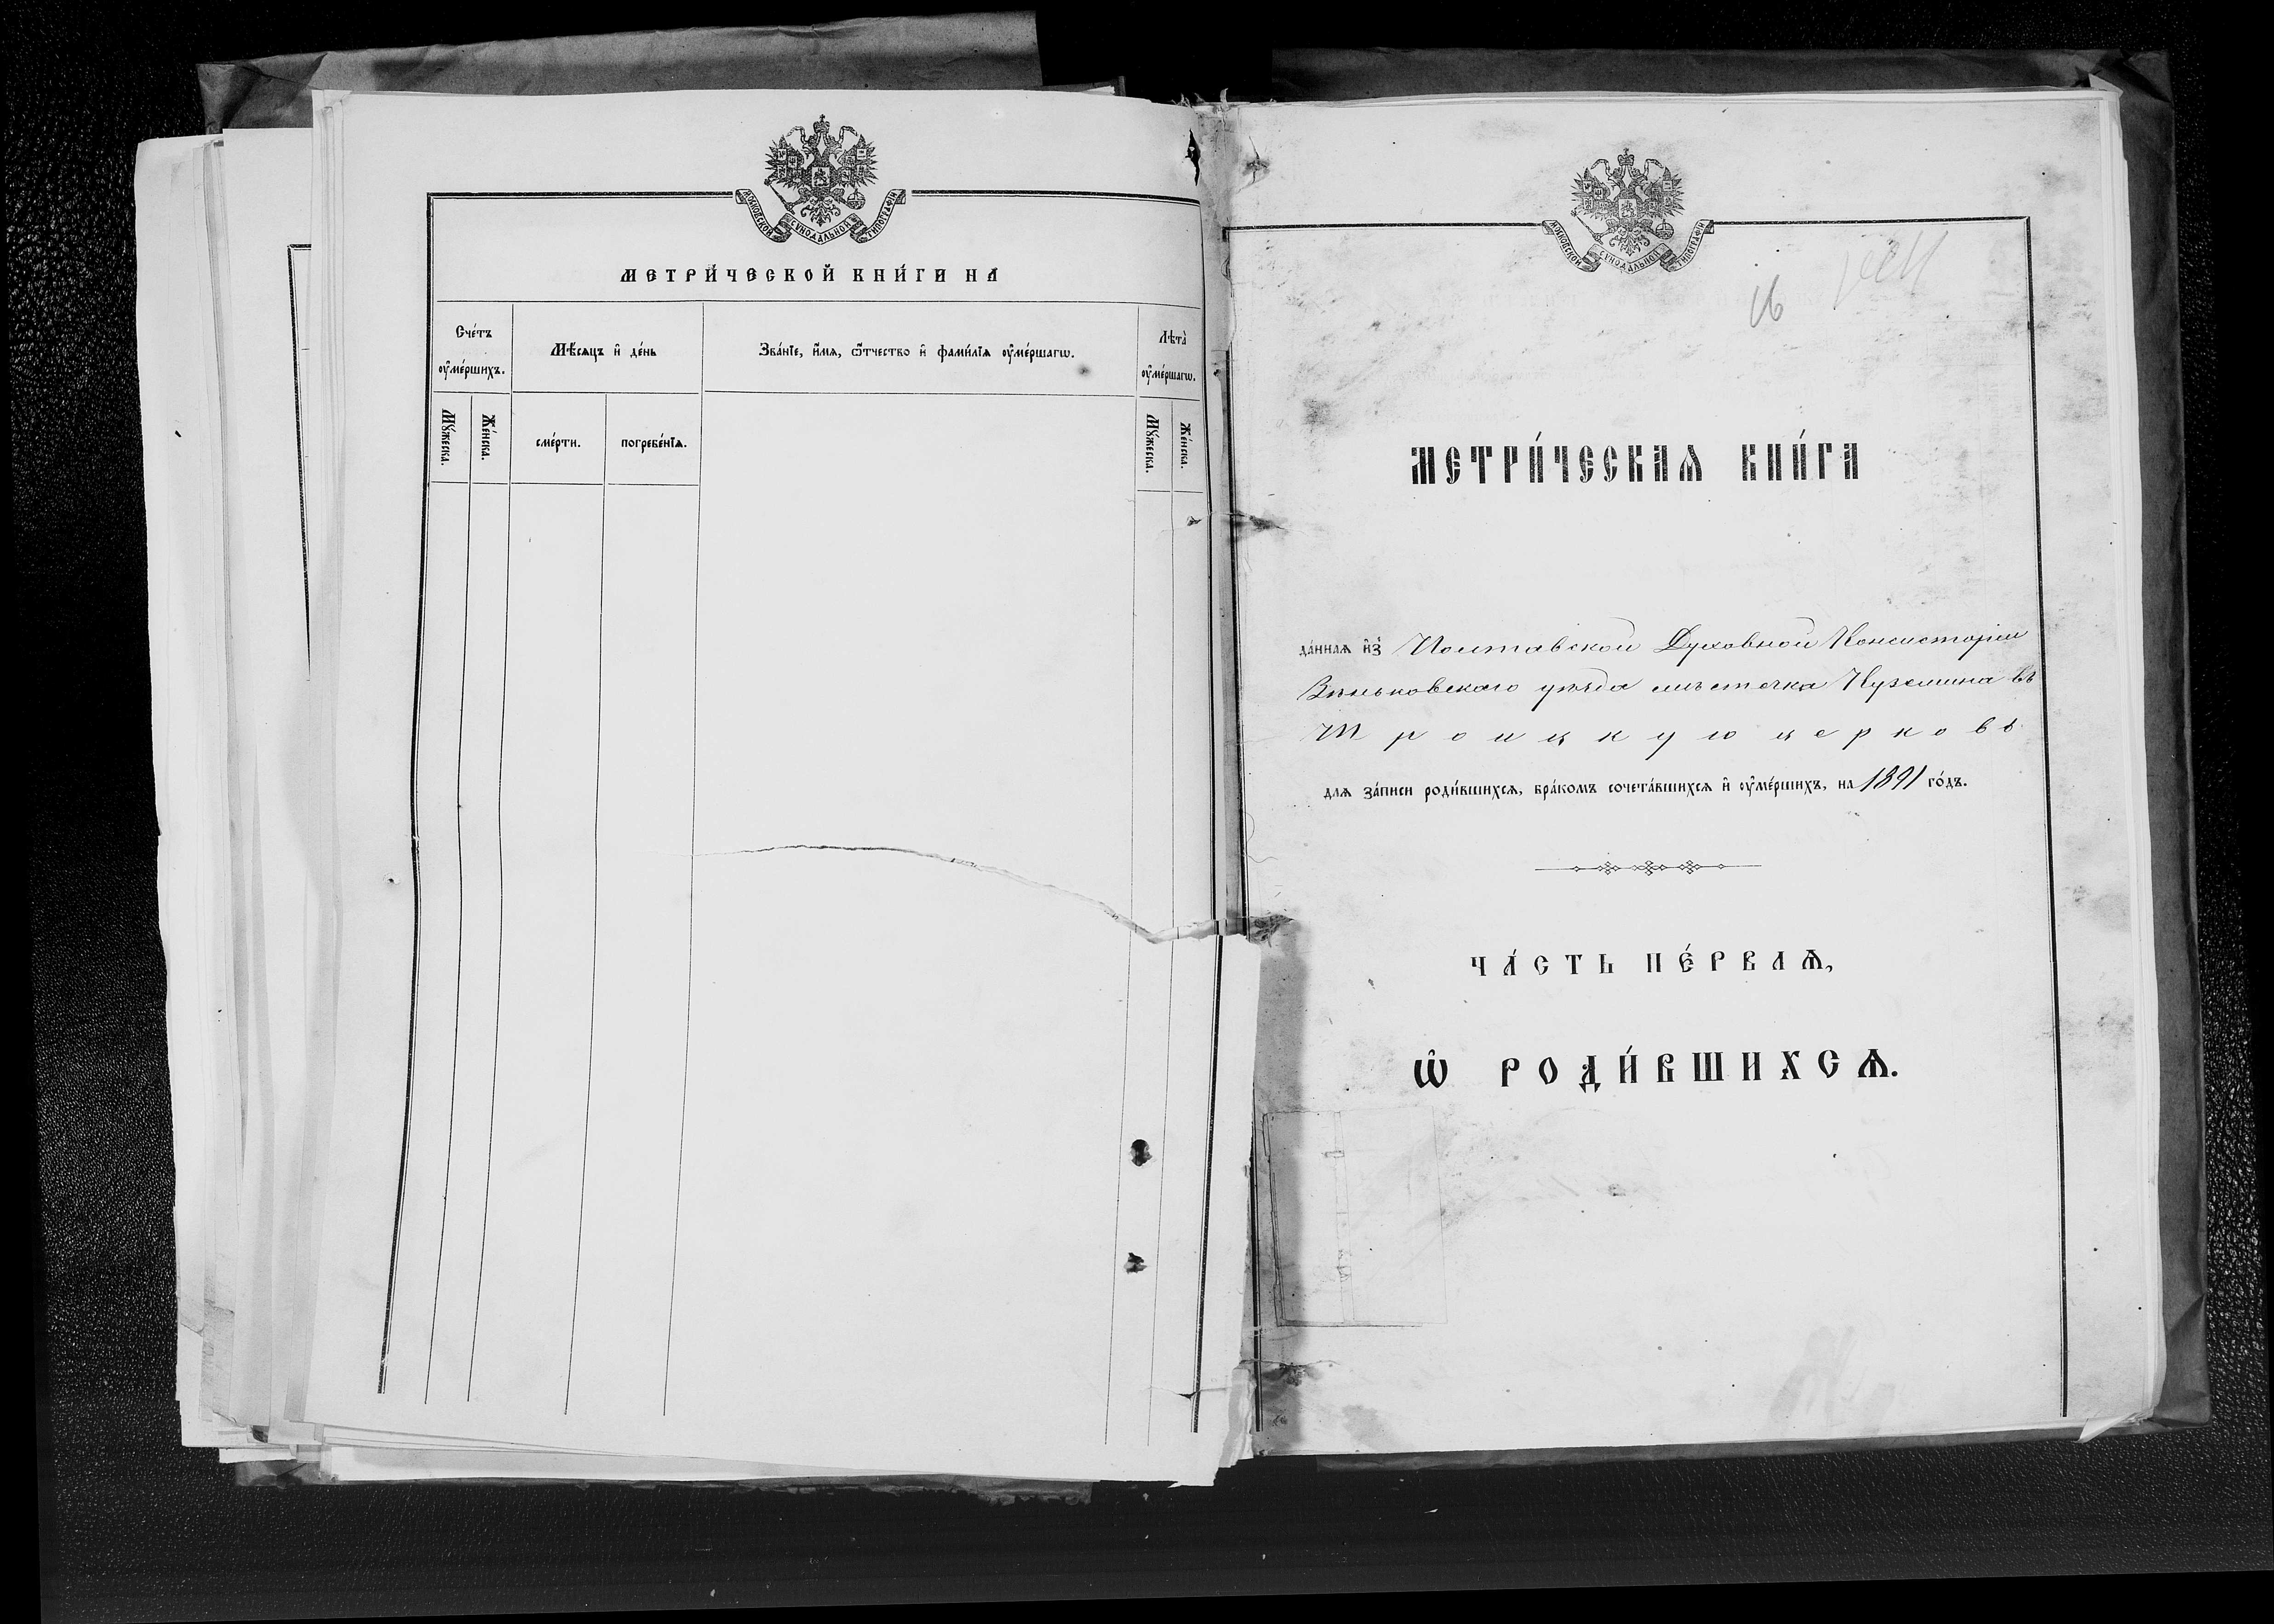 МОСКОВСКОЙ СѴНОДАЛЬНОЙ ТИПОГРАФІИ
МЕТРИ́ЧЕСКОЙ КНИ́ГИ НА
Сче́тъ оу҆ме́ршихъ.
Мѣ́сяцъ и҆ де́нь
Зва́нїе, и҆́мѧ, ѻ҆́тчество и҆ фами́лїѧ оу҆ме́ршагѡ.
Лѣта̀ оу҆ме́ршагѡ.
Мꙋ́жеска.
Же́нска.
сме́рти.
погребе́нїѧ.
Мꙋ́жеска.
Же́нска.
МОСКОВСКОЙ СѴНОДАЛЬНОЙ ТИПОГРАФІИ
16
МЕТРИ́ЧЕСКАѦ КНИ́ГА
да́ннаѧ и҆з̾ Полтавской Духовной Консисторіи
Зѣньковскаго уѣзда мѣстечка Куземина въ
Троицкую церковь
для за́писи роди́вшихсѧ, бра́комъ сочета́вшихсѧ и҆ оу҆ме́ршихъ, на 1891 го́дъ.
ЧА́СТЬ ПЕ́РВАѦ,
Ѡ҆ РОДИ́ВШИХСѦ.